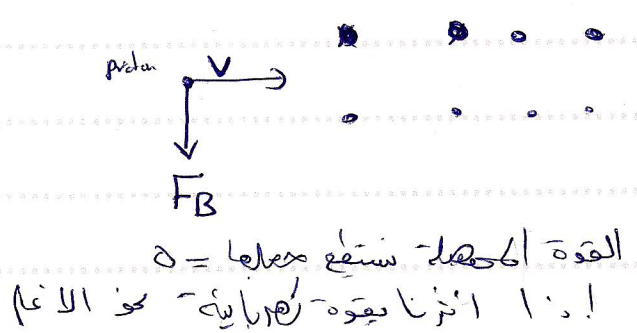 proton
V
FB
القوة المحصلة نستطيع جعلها = 0
إذا أثرنا بقوة كهربائية نحو الأعلى